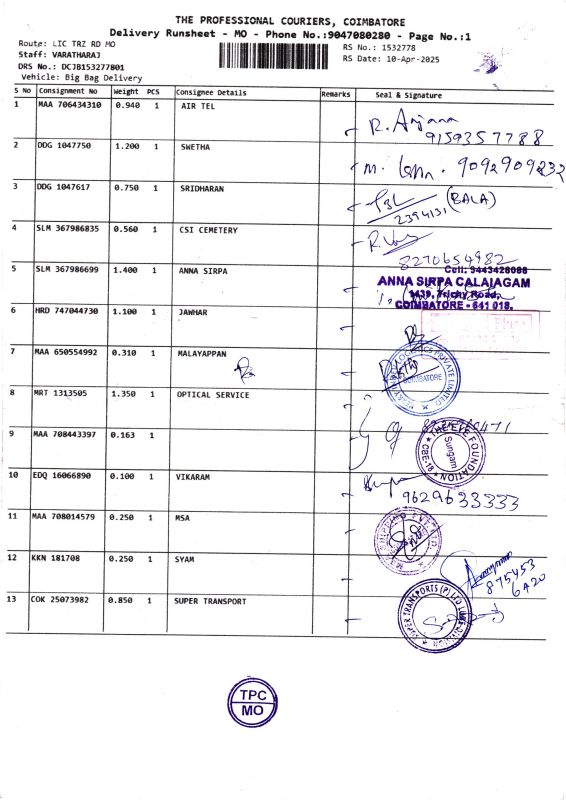 THE PROFESSIONAL COURIERS, COIMBATORE
Delivery Runsheet - MO - Phone No.:9047080280 - Page No.:1
Route: LIC TRZ RD MO
Staff: VARATHARAJ
DRS No.: DCJB153277801
Vehicle: Big Bag Delivery
RS No.: 1532778
RS Date: 10-Apr-2025
S No Consignment No Weight PCS Consignee Details Remarks Seal & Signature
1 MAA 706434310 0.940 1 AIR TEL
R. Anjana
9159357788
2 DDG 1047750 1.200 1 SWETHA
9092909232
3 DDG 1047617 0.750 1 SRIDHARAN
(BALA)
2394131
4 SLM 367986835 0.560 1 CSI CEMETERY
8270654982
5 SLM 367986699 1.400 1 ANNA SIRPA
Cell: 9443428088
ANNA SIRPA CALAIAGAM
1439, Trichy Road,
COIMBATORE - 641 018.
6 HRD 747044730 1.100 1 JAWHAR
7 MAA 650554992 0.310 1 MALAYAPPAN
COIMBATORE
8 MRT 1313505 1.350 1 OPTICAL SERVICE
9 MAA 708443397 0.163 1
THE EYE FOUNDATION
Sungam
CBE-18
10 EDQ 16066890 0.100 1 VIKARAM
9629633333
11 MAA 708014579 0.250 1 MSA
12 KKN 181708 0.250 1 SYAM
875453
6420
13 COK 25073982 0.850 1 SUPER TRANSPORT
SUPER TRANSPORTS (P) LTD
TPC
MO